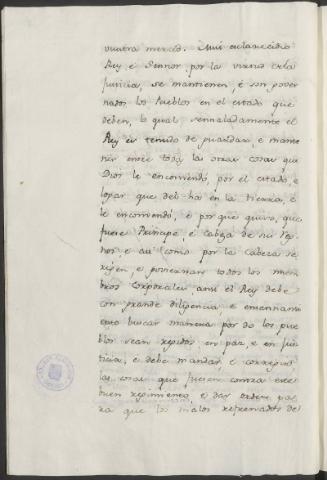 vuestra merced. Mui esclarecido
Rey é Sennor por la virtud de la
Justicia, se mantienen, é son gover
nados los Pueblos en el estado que
deben, la qual sennaladamente el
Rey és tenudo de guardar, e mante
nér entre todas las otras cosas que
Dios le encomendó, por el estado, e
logar que del ha en la tierra, é
le encomendó, é por que quiso, que
fuese Principe, é cabeza de sus reg
nos, é asi como por la cabeza se
rigen, é goviernan todos los miem
bros Corporales ansi el Rey debe
con grande diligencia é
buscar manera por do los pue
blos sean regidos en paz, e en jus
ticia, e debe mandar, é corregir
las cosas que fuesen contra este
buen regimiento, é dar orden pa
ra que los malos refrenados de